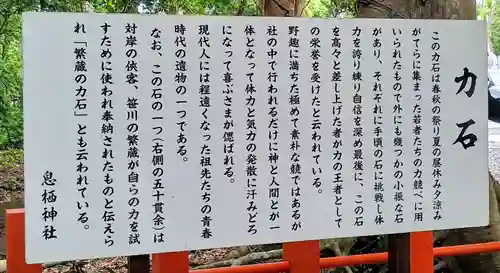 力石
この力石は春秋の祭り夏の昼休み夕涼み
がてらに集まった若者たちの力競べに用
いられたもので外にも幾つかの小振な石
があり、それぞれに手頃の石に挑戦し体
力を誇り練り自信を深め最後に、この石
を高々と差し上げた者が力の王者として
の栄誉を受けたと云われている。
野趣に満ちた極めて素朴な競ではあるが
社の中で行われるだけに神と人間とが一
体となって体力と気力の発散に汗みどろ
になって喜ぶさまが偲ばれる。
現代人には程遠くなった祖先たちの青春
時代の遺物の一つである。
なお、この石の一つ(右側の五十貫余)は
対岸の侠客、笹川の繁蔵が自らの力を試
すために使われ奉納されたものと伝えら
れ「繁蔵の力石」とも云われている。
息栖神社